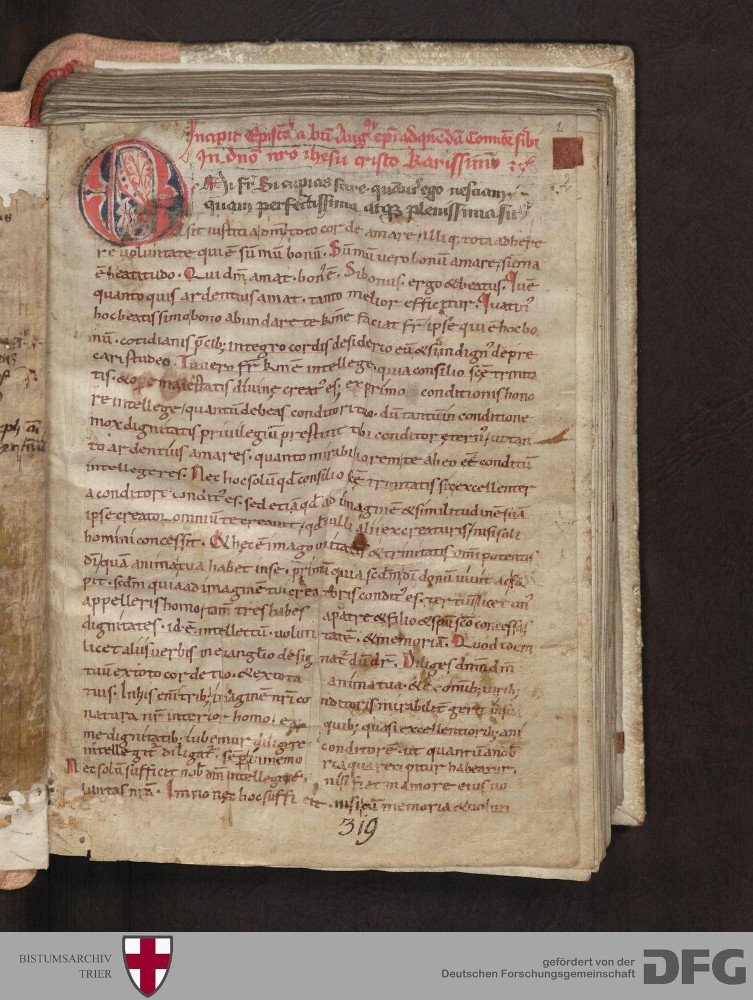 Incipit Epistola bti Aug' epi ad quendā Comitē sibi
In dno nro ihesu cristo karissimo
Mi fr̄ Si cupias scire quamuis ego nesciam
quam perfectissima atq; plenissima sit
sit iustitia dm̄ toto corde amare illiq; tota adherere
re uoluntate qui ē summū bonū. Summū uero bonū amare, summa
ē beatitudo. Qui dm̄ amat. bon' ē. Si bonus. ergo & beatus. Quē
quanto quis ardentius amat. tanto melior efficitur.
hoc beatissimo bono abundare te km̄e faciat fr̄ ipse qui ē hoc bo
nū. cotidianis p̄cib; integro cordis desiderio eū & si indign' depre
cari studeo. Tu uero fr̄ km̄e intellege. quia consilio scē trinita
tis. & ope maiestatis diuine creat' es; ex primo conditionis hono
re intellege quantū debeas conditori tuo. dū tantū in conditione
mox dignitatis priuilegiū prestitit tibi conditor etern', ut tan
to ardentius amares. quanto mirabiliorem te ab eo eē conditū
intellegeres. Nec hoc solū qd̄ consilio scē trinitatis sic excellenter
a conditore condit' es. sed etiā qd̄ ad imaginē & similitudinē suā
ipse creator omniū te creauit, qd̄ nulli alii ex creaturis, nisi soli
homini concessit. Que hec ē imago unitatis & trinitatis omipotentis
di quā anima tua habet in se. primū quia sicut di donū uiuit ac sa
pit. scdm quia ad imaginē tui creatoris condit' es. tertiū licet un'
appelleris homo tam̄ tres habes a patre & filio & spu sco concessas
dignitates. id ē. intellectū. uoluntatē. & memoriam. Quod idem
licet aliis uerbis in euanglio designat' dū dr̄. Diliges dnm dm̄
tuū ex toto corde tuo. & ex tota anima tua. & ex omnib; uirib;
tuis. In his em̄ trib; imaginē nri conditoris mirabilit' gerit in sua
natura nr̄ interior homo. ex quib; quasi excellentiorib; ani
me dignitatib; iubemur diligere conditorē. ut quantū a nob'
intellegit' diligat'. & semp in memoria quare recipitur habeatur.
Nec solū sufficit nob' dm̄ intellegere, nisi fiat in amore eius uo
luntas nr̄a. Immo nec hoc sufficit. nisi cū memoria & uolun
319
BISTUMSARCHIV
TRIER
gefördert von der
Deutschen Forschungsgemeinschaft
DFG